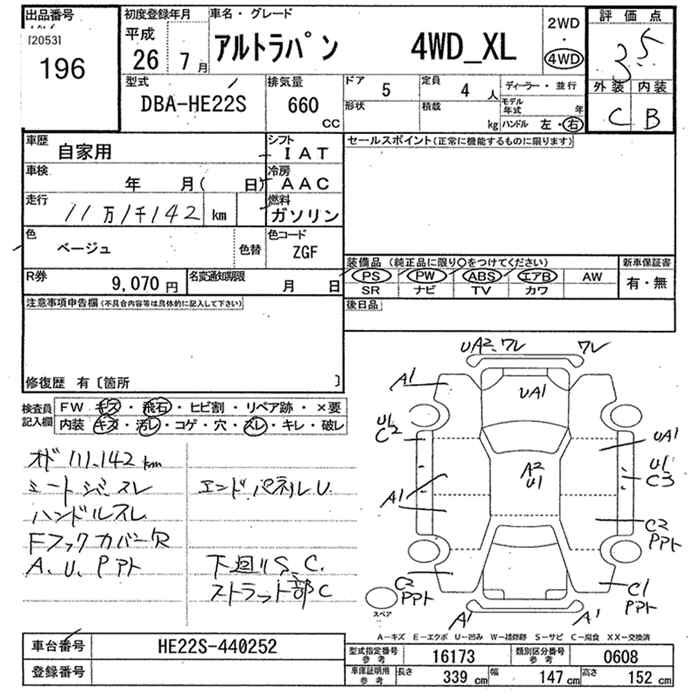 出品番号
[2053]
196
初度登録年月
平成
26 年 7 月
車名・グレード
アルトラパン 4WD_XL
2WD
・
4WD
評価点
3.5
外装 内装
C B
型式
DBA-HE22S
排気量
660
cc
ドア 5
定員 4 人
ディーラー・並行
形状
積載 kg
モデル年式 年
ハンドル 左・右
車歴
自家用
シフト
IAT
車検
年 月( 日)
冷房
AAC
走行
11万1千142 km
燃料
ガソリン
色
ベージュ
色替
色コード
ZGF
R券
9,070 円
名変通知期限
月 日
セールスポイント(正常に機能するものに限ります)
装備品(純正品に限り〇をつけてください)
PS PW ABS エアB AW
SR ナビ TV カワ
新車保証書
有・無
後日品
注意事項申告欄(不具合内容等は具体的に記入して下さい)
修復歴 有〔箇所 〕
検査員記入欄
FW キズ・飛石・ヒビ割・リペア跡・×要
内装 キズ・汚レ・コゲ・穴・スレ・キレ・破レ
オド 111.142 km
シートシミ スレ
ハンドルスレ
Fフックカバー欠
A.U.Pアト
エンドパネルU.
下廻りS.C.
ストラット部C
UA2.ワレ
ワレ
A1
UA1
A1
U1
C2
UA1
U1
C3
A2
U1
A1
C2
Pアト
C2
Pアト
C1
Pアト
A1
A1
スペア
A-キズ E-エクボ U-凹み W-補修跡 S-サビ C-腐食 XX-交換済
車台番号
HE22S-440252
登録番号
型式指定番号
参考
16173
類別区分番号
参考
0608
車庫証明用
参考
長さ 339 cm
幅 147 cm
高さ 152 cm